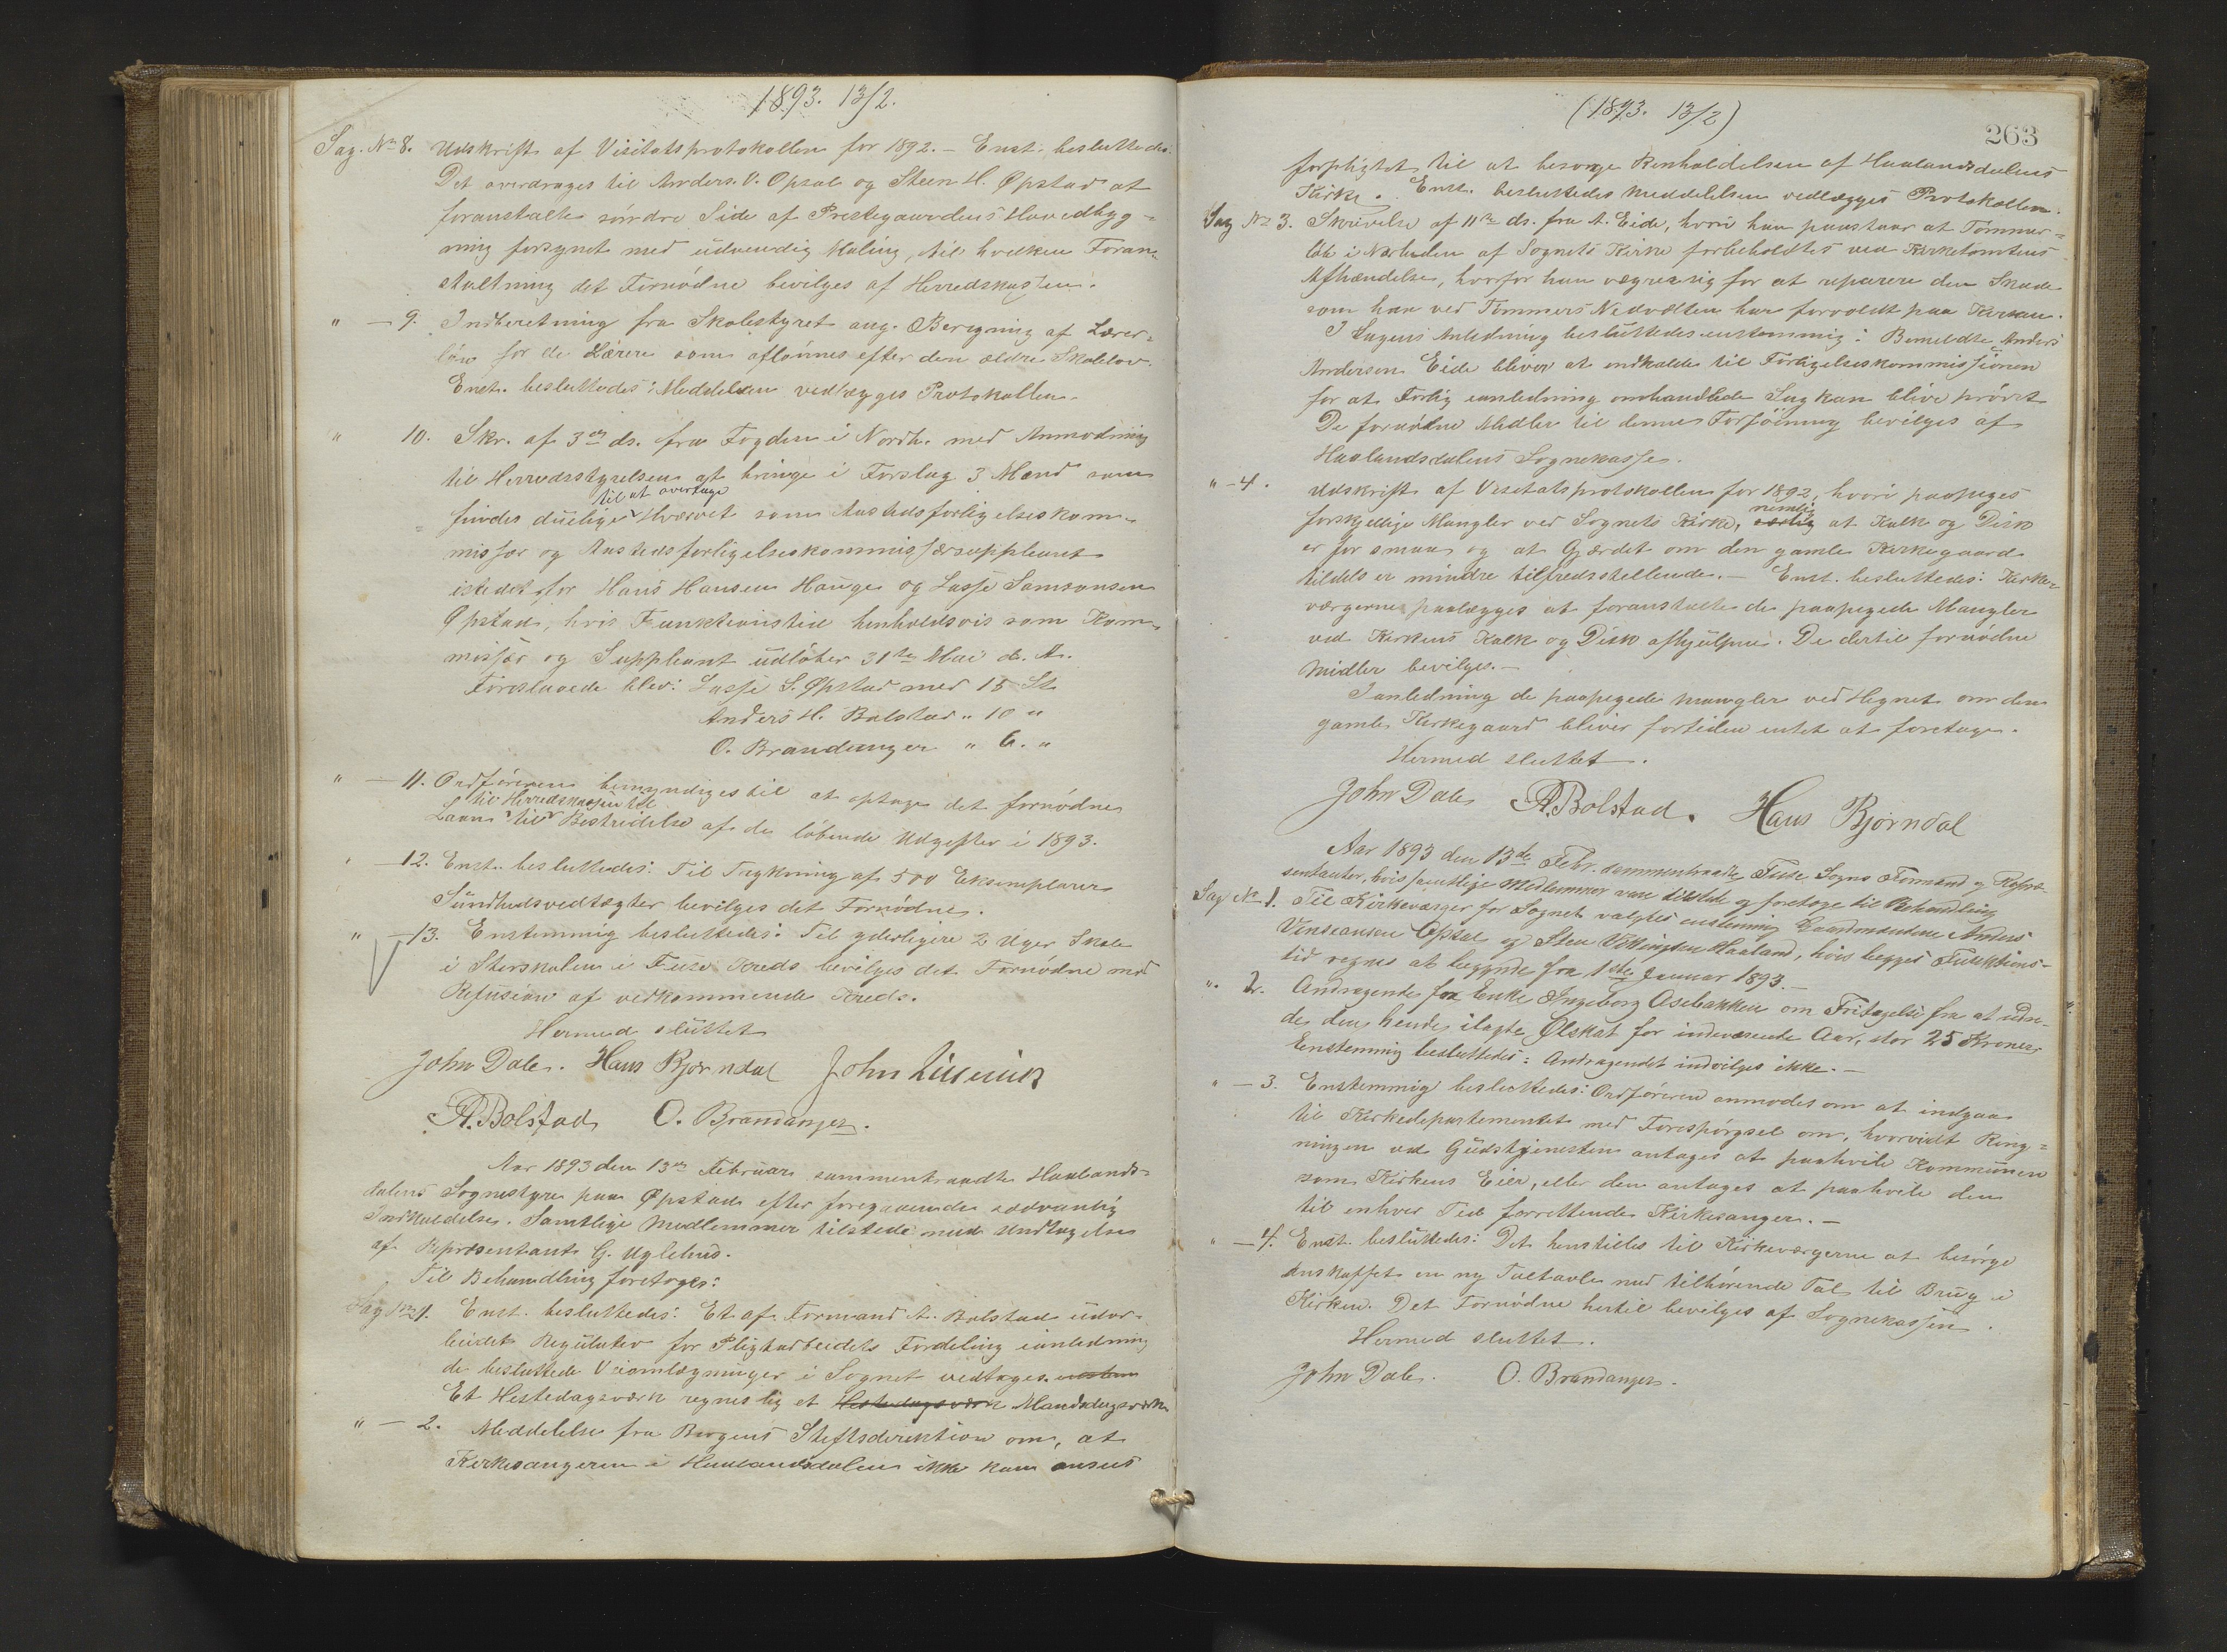 1893. 13/2.
Sag. No 8. Udskrift af Visitatsprotokollen for 1892. – Enst. besluttedes:
Det overdrages til Anders. V. Opsal og Steen H. Øpstad at
foranstalte søndre Side af Prestegaardens Hovedbyg-
ning forsynet med udvendig Maling, til hvilken Foran-
staltning det Fornødne bevilges af Herredskassen.
" – 9. Indberetning fra Skolestyret ang. Beregning af Lærer-
løn for de Lærere som aflønnes efter den ældre Skolelov.
Enst. besluttedes: Meddelelsen vedlægges Protokollen.
" 10. Skr. af 3die ds. fra Fogden i Nordh. med Anmodning
til Herredsstyrelsen at bringe i Forslag 3 Mænd som
til at overtage
findes duelige Hvervet som Aastedsforligelseskom-
missær og Aastedsforligelseskommissærsuppleant
istedet for Hans Hansen Hauge og Lasse Samsonsen
Øpstad, hvis Funktionstid henholdsvis som Kom-
missær og Suppleant udløber 31te Mai d. A.
Foreslaaede blev: Lasse S. Øpstad med 15 St.
Anders H. Bolstad " 10 "
O. Brandanger " 6. "
" – 11. Ordføreren bemyndiges til at optage det fornødne
til Herredskassen til
Laan til Bestridelse af de løbende Udgifter i 1893.
" – 12. Enst. besluttedes: Til Trykning af 500 Eksemplarer
Sundhedsvedtægter bevilges det Fornødne.
" – 13. Enstemmig besluttedes: Til yderligere 2 Uger Skole
i Storskolen i Fuse Kreds bevilges det Fornødne mod
Refusion af vedkommende Kreds.
Hermed sluttet
John Dale. Hans Bjørndal John
A. Bolstad O. Brandanger.
Aar 1893 den 13de Februar sammentraadte Haalands-
dalens Sognestyre paa Øpstad efter foregaaende sædvanlig
Indkaldelse. Samtlige Medlemmer tilstede med Undtagelse
af Repræsentant G. Uglehus.
Til Behandling foretoges:
Sag No 1. Enst. besluttedes: Et af Formand A. Bolstad udar-
beidet Regulativ for Pligtarbeidets Fordeling ianledning
de besluttede Veiomlægninger i Sognet vedtages. enstem
Et Hestedagsværk regnes lig et Hestedagsværk Mandsdagsværk
" – 2. Meddelelse fra Bergens Stiftsdirektion om, at
Kirkesangeren i Haalandsdalen ikke kan ansees
(1893. 13/2)
263
forpligtet til at besørge Renholdelsen af Haalandsdalens
Kirke. Enst. besluttedes Meddelelsen vedlægges Protokollen.
Sag No 3. Skrivelse af 11te ds. fra A. Eide, hvori han paastaar at Tømmer-
løb i Nærheden af Sognets Kirke forbeholdtes ved Kirketomtens
Afhændelse, hvorfor han vægrer sig for at reparere den Skade
som han ved Tømmers Nedvælten har forvoldt paa Kirken.
I Sagens Anledning besluttedes enstemmig: Bemeldte Anders
Andersen Eide bliver at indkalde til Forligelseskommissionen
for at Forlig ianledning omhandlede Sag kan blive prøvet
De fornødne Midler til denne Forføining bevilges af
Haalandsdalens Sognekasse.
" – 4. Udskrift af Visitatsprotokollen for 1892, hvori paapeges
nemlig
forskjellige Mangler ved Sognets Kirke, særlig at Kalk og Disk
er for smaa og at Gjærdet om den gamle Kirkegaard
tildels er mindre tilfredsstillende. – Enst. besluttedes: Kirke-
værgerne paalægges at foranstalte de paapegede Mangler
ved Kirkens Kalk og Disk afhjulpne. De dertil fornødne
Midler bevilges. –
Ianledning de paapegede Mangler ved Hegnet om den
gamle Kirkegaard bliver fortiden intet at foretage.
Hermed sluttet.
John Dale A. Bolstad. Hans Bjørndal
Aar 1893 den 13de Febr. sammentraadte Fuse Sogns Formænd og Repræ-
sentanter, hvis samtlige Medlemmer vare tilstede og foretoge til Behandling
Sag No 1. Til Kirkeværger for Sognet valgtes enstemmig Gaardmændene Anders
Vinsiansen Opsal og Sten Vikingsen Haaland, hvis begges Funktions-
tid regnes at begynde fra 1ste Januar 1893. –
" 2. Andragende fra Enke Ingeborg Osebakken om Fritagelse fra at udre-
de den hende ilagte Ølskat for indeværende Aar, stor 25 Kroner.
Enstemmig besluttedes: Andragendet indvilges ikke. –
" – 3. Enstemmig besluttedes: Ordføreren anmodes om at indgaa
til Kirkedepartementet med Forespørgsel om, hvorvidt Ring-
ningen ved Gudstjenesten antages at paahvile Kommunen
som Kirkens Eier, eller den antages at paahvile den
til enhver Tid forrettende Kirkesanger. –
" – 4. Enst. besluttedes: Det henstilles til Kirkeværgerne at besørge
anskaffet en ny Taltavle med tilhørende Tal til Brug i
Kirken. Det Fornødne hertil bevilges af Sognekassen.
Hermed sluttet.
John Dale. O. Brandanger.